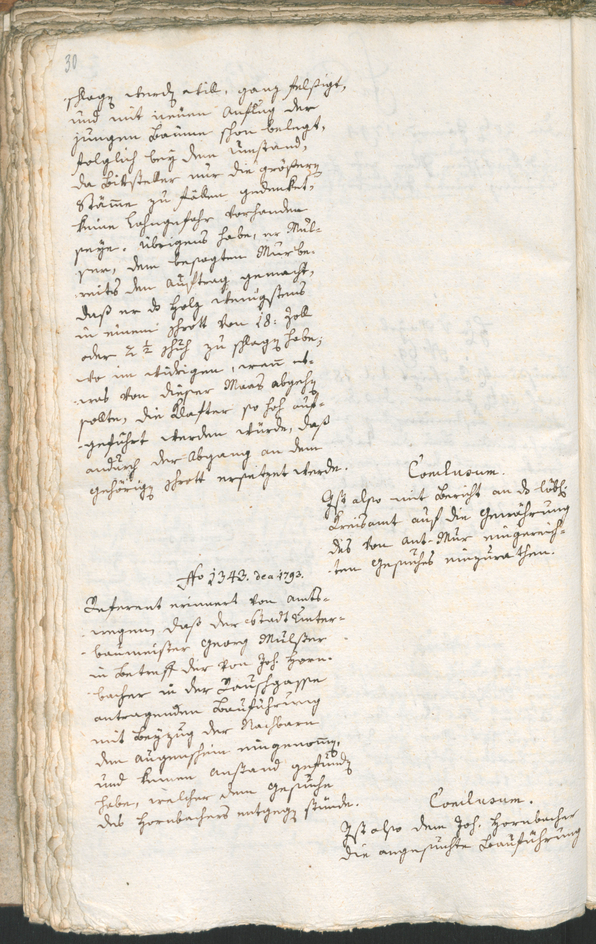 30
schlagen werden will, ganz felsigt,
und mit neuen Anflug der
jungen Bäume schon belegt,
folglich bey dem Umstand,
da Bittsteller nur die größern
Stäme zu fällen gedenket,
keine Lahngefahr vorhanden
seye. Übrigens habe, er Mül-
ser, dem besagten Mur be-
reits den Auftrag gemacht,
daß er ds Holz wenigstens
in einem Schrott von 18: Zoll
oder 2 ½ Schuh zu schlagen habe;
wo im widrigen, wenn et-
was von dieser Maas abgehen
sollte, die Klafter so hoch auf-
geführt werden würde, daß
andurch der Abgang an dem
gehörigen Schrott ersetzet werde.
Conclusum.
Ist also mit Bericht an ds löbl:
Kreisamt auf die Gewährung
des von Ant. Mur eingereich-
ten Gesuches einzurathen.
No 1343. de a 1793.
Referent erinnert von Amts-
wegen, daß der Stadt Unter-
baumeister Georg Mülßer
in Betreff der von Joh. Horn-
bacher in der Rauschgasse
antragenden Bauführung
mit Beyzug der Nachbarn
den Augenschein eingenomen,
und keinen Anstand gefunden
habe, welcher dem Gesuche
des Hornbachers entgegen stünde.
Conclusum.
Ist also dem Joh. Hornbacher
die angesuchte Bauführung